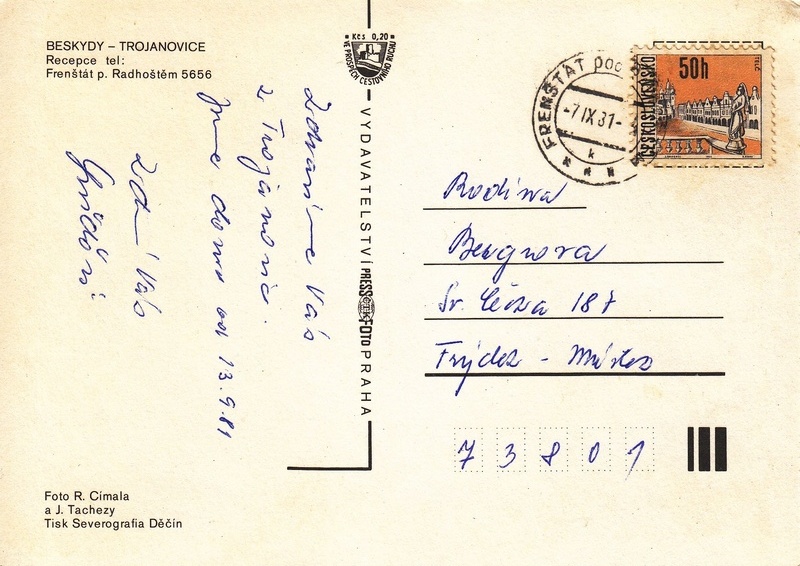 BESKYDY – TROJANOVICE
Recepce tel:
Frenštát p. Radhoštěm 5656
Kčs 0,20
VE PROSPĚCH CESTOVNÍHO RUCHU
Zdravíme Vás
z Trojanovic.
jsme doma od 13.9.81
Zdraví Vás
VYDAVATELSTVÍ PRESSFOTO PRAHA
ČTK
FRENŠTÁT pod
-7.IX.81-
k
50h
ČESKOSLOVENSKO
TELČ
Rodina
187
Frýdek - Místek
73801
Foto R. Címala
a J. Tachezy
Tisk Severografia Děčín